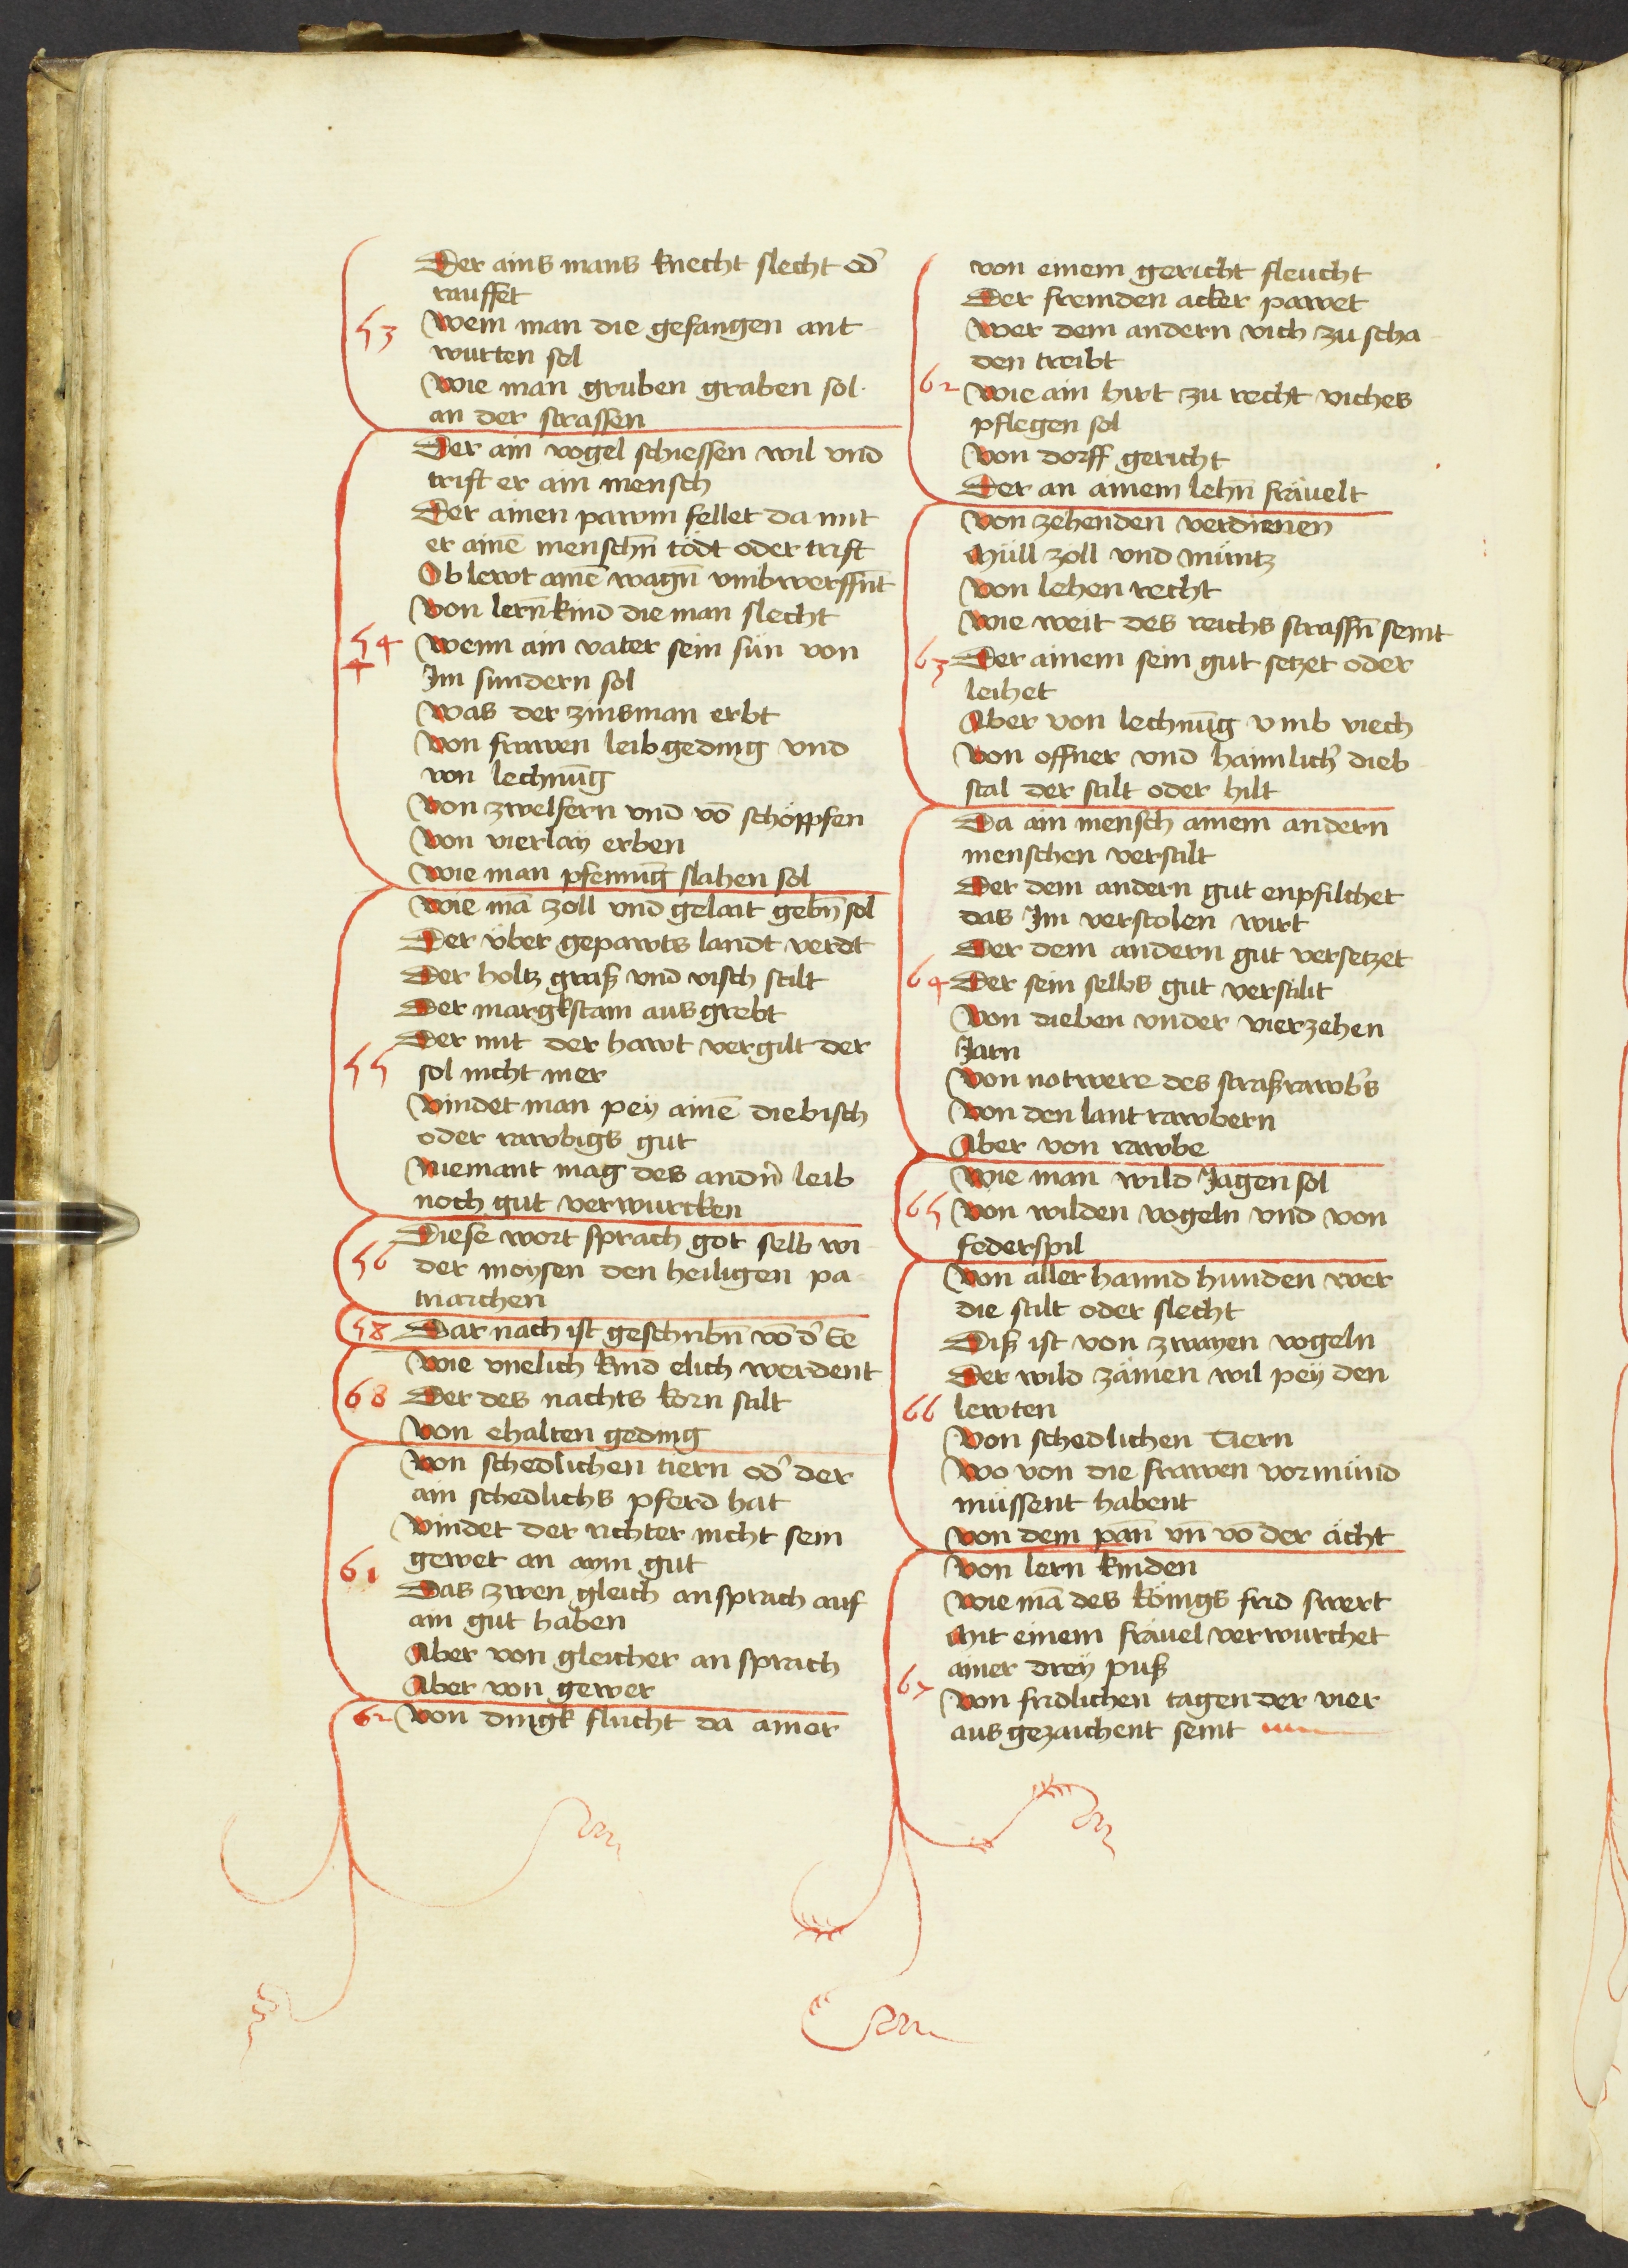 Der ains mans knecht slecht od'
rauffet
53
Wem man die gefangen ant
wurten sol
Wie man gruben graben sol
an der strassen
Der ain vogel schiessen wil vnd
trift er ain mensch
Der ainen pawm fellet da mit
er ainē menschn̄ tödt oder trift
Ob lewt ainē wagn̄ vmbwerffn̄t
Von lern̄kind die man slecht
54
Wenn ain vater sein sün von
Im sundern sol
Was der zinsman erbt
Von frawen leibgeding vnd
von lechnūg
Von zwelfern vnd vō schöppfen
Von vierlaÿ erben
Wie man pfennīg slahen sol
Wie mā zoll vnd gelait gebn̄ sol
Der über gepawts landt verdt
Der holtz graß vnd visch stilt
Der margkstain aus grebt
Der mit der hawt vergilt der
55
sol nicht mer
Vindet man peÿ ainē diebisch
oder rawbigs gut
Niemant mag des andn̄ leib
noch gut verwurcken
Diese wort sprach got selb wi
56
der moysen den heiligen pa
triarchen
58 Dar nach ist geschribn̄ vō d' Ee
Wie vnelich kind elich werdent
68 Der des nachts korn stilt
Von ehalten geding
Von schedlichen tiern od' der
ain schedlichs pferd hat
Vindet der richter nicht sein
61
gewet an aym gut
Das zwen gleich ansprach auf
ain gut haben
Aber von gleicher an sprach
Aber von gewer
62 Von dingk flucht da ainer
von einem gericht fleucht
Der fremden acker pawet
Wer dem andern vich zu scha
den treibt
62
Wie ain hirt zu recht viches
pflegen sol
Von dorff gericht
Der an ainem lehn̄ fräuelt
Von zehenden verdienen
Müll zoll vnd müntz
Von lehen recht
Wie weit des reichs strassn̄ seint
63
Der ainem sein gut setzet oder
leihet
Aber von lechnūg vmb viech
Von offner vnd haimlich' dieb
stal der stilt oder hilt
Da ain mensch ainem andern
menschen verstilt
Der dem andern gut enpfilchet
das Im verstolen wirt
Der dem andern gut versetzet
64 Der sein selbs gut verstilit
Von dieben vnder vierzehen
Jarn
Von notwere des straßrawb's
Von den lant rawbern
Aber von rawbe
Wie man wild Jagen sol
65 Von wilden vogeln vnd von
federspil
Von aller hannd hunden wer
die stilt oder slecht
Diß ist von zwayen vogeln
Der wild zämen wil peÿ den
66 lewten
Von schedlichen Tiern
Wo von die frawen vormünd
müssent habent
Von dem pan̄ vn̄ vō der ächt
Von lern kinden
Wie mā des königs frid swert
Mit einem fräuel verwurchet
ainer dreÿ puß
67
Von fridlichen tagen der vier
aus gezaichent seint